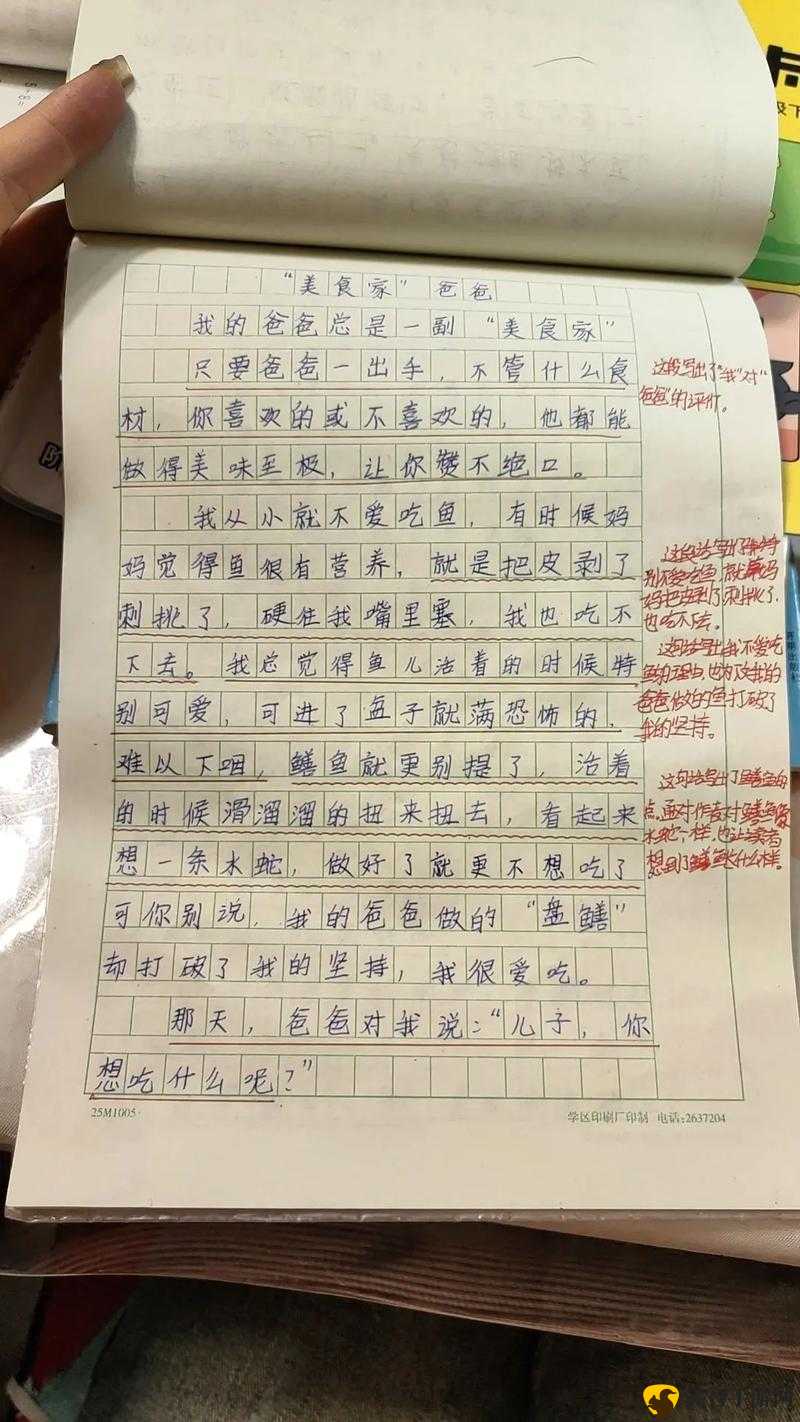 "美食家"爸爸
我的爸爸总是一副"美食家"
只要爸爸一出手，不管什么食
材，你喜欢的或不喜欢的，他都能
做得美味至极，让你赞不绝口。
我从小就不爱吃鱼，有时候妈
妈觉得鱼很有营养，就是把皮剥了
刺挑了，硬往我嘴里塞，我也吃不
下去。我总觉得鱼儿活着的时候特
别可爱，可进了盘子就满恐怖的，
难以下咽，鳝鱼就更别提了，活着
的时候滑溜溜的扭来扭去，看起来
想一条水蛇，做好了就更不想吃了
可你别说，我的爸爸做的"盘鳝"
却打破了我的坚持，我很爱吃。
那天，爸爸对我说："儿子，你
想吃什么呢？"
25M1005
学区印刷厂印制 电话:2637204
这段写出了"我"对"
爸爸"的评价。
别不爱吃鱼，就算妈
妈把皮剥了，刺挑了，
也吃不下去。
这句话写出我不爱吃
爸爸做的鱼打破了
我的坚持。
这句话写出了鳝鱼的
水蛇一样，也让读者
想到了鳝鱼长什么样。